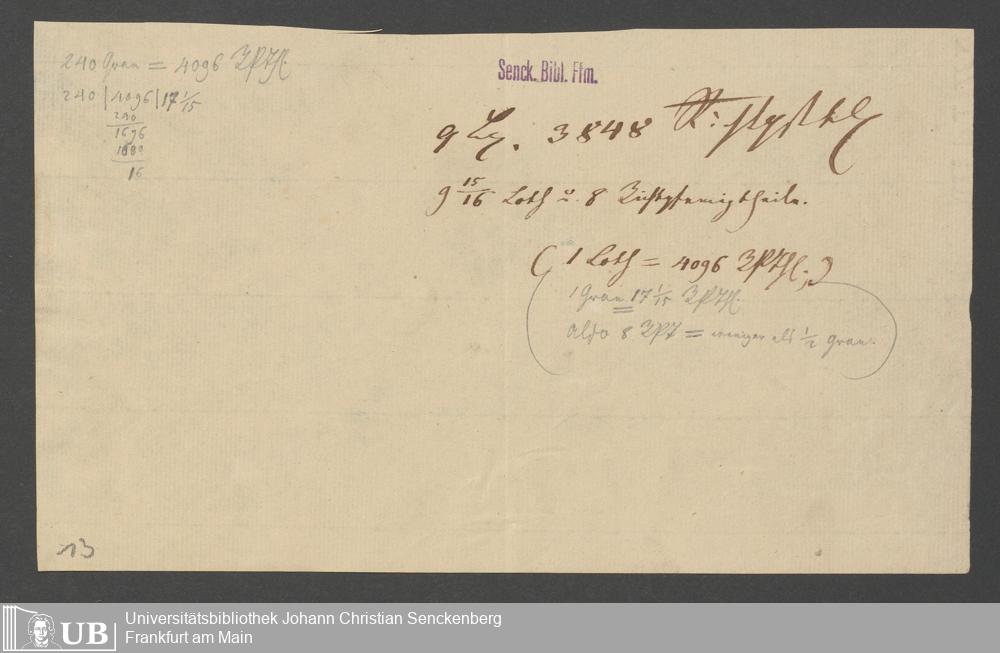 240 Gran = 4096 RPThl.
240 | 4096 | 17 1/15
240
1696
1680
16
Senck. Bibl. Ffm.
9 L. 3848
9 15/16 Loth u. 8 Richtpfennigtheile.
( 1 Loth = 4096 RPThl. )
1 Gran 17 1/15 RPThl.
also 8 RPT = weniger als 1/2 Gran.
13
UB
Universitätsbibliothek Johann Christian Senckenberg
Frankfurt am Main